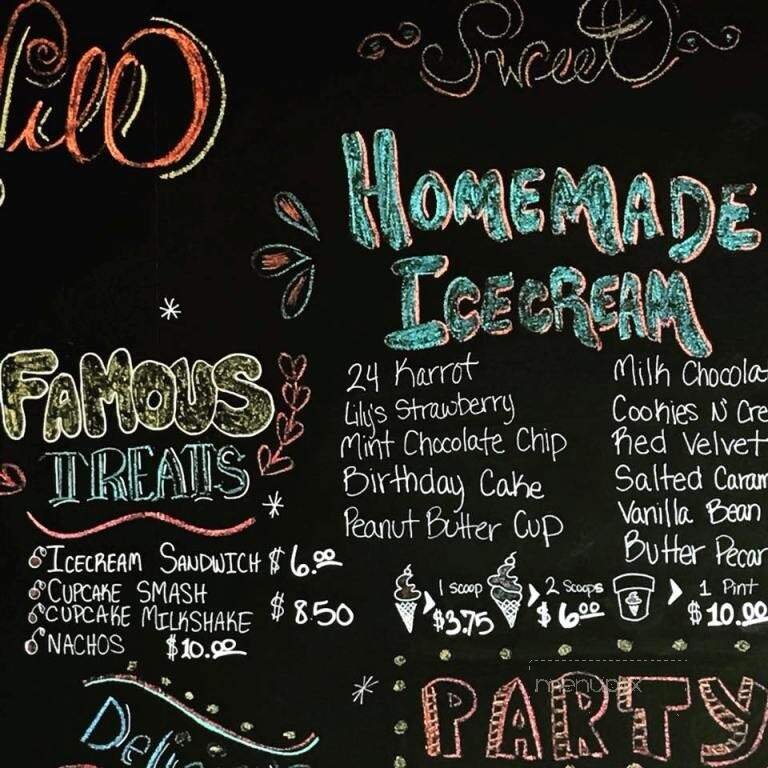 Sweet
HOMEMADE
ICECREAM
24 Karrot
Lily's Strawberry
Mint Chocolate Chip
Birthday Cake
Peanut Butter Cup
Milk Chocola
Cookies N' Cre
Red Velvet
Salted Caram
Vanilla Bean
Butter Pecan
1 scoop $3.75
2 Scoops $6.00
1 Pint $10.00
FAMOUS
TREATS
ICECREAM SANDWICH $6.00
CUPCAKE SMASH
CUPCAKE MILKSHAKE $8.50
NACHOS $10.00
PARTY
menupix